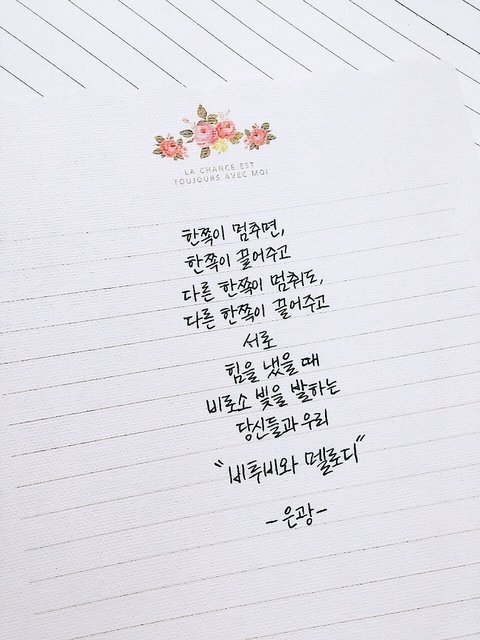 LA CHANCE EST
TOUJOURS AVEC MOI
한쪽이 멈추면,
한쪽이 끌어주고
다른 한쪽이 멈춰도,
다른 한쪽이 끌어주고
서로
힘을 냈을 때
비로소 빛을 발하는
당신들과 우리
"비투비와 멜로디"
-은광-